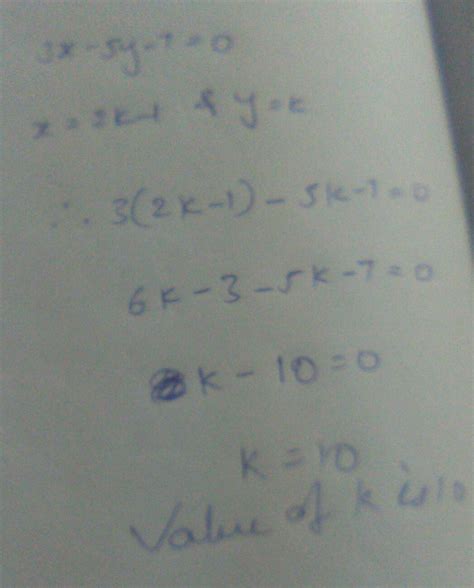 3x-5y-7=0
x=2k-1 & y=k
∴ 3(2k-1)-5k-7=0
6k-3-5k-7=0
k-10=0
k=10
Value of k is 10